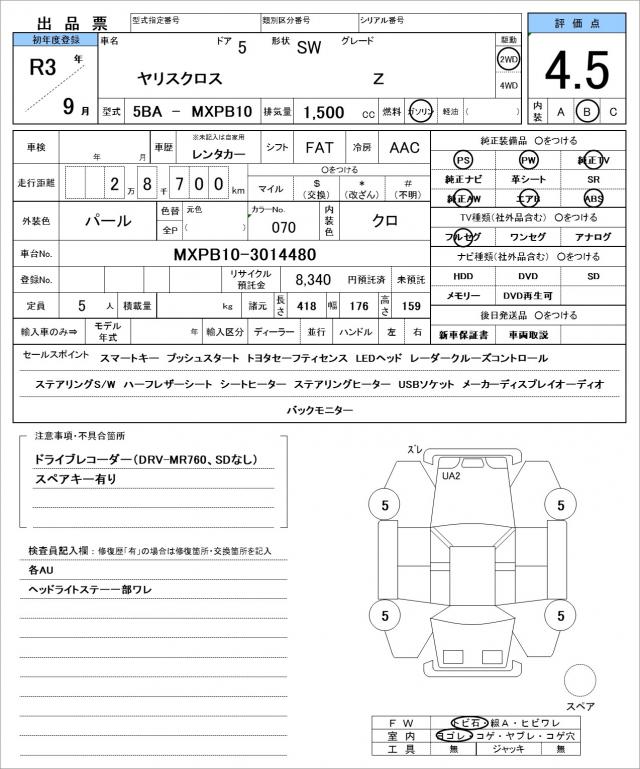 出品票 型式指定番号 類別区分番号 シリアル番号 評価点
初年度登録 車名 ドア 5 形状 SW グレード 駆動
R3 年 9 月 ヤリスクロス Z 2WD 4WD 4.5
型式 5BA － MXPB10 排気量 1,500 cc 燃料 ガソリン 軽油 ( ) 内装 A B C
車検 年 月 車歴 ※未記入は自家用 レンタカー シフト FAT 冷房 AAC 純正装備品 〇をつける
PS PW 純正TV
走行距離 2 万 8 千 7 0 0 km 〇をつける マイル $ (交換) * (改ざん) # (不明) 純正ナビ 革シート SR
純正AW エアB ABS
外装色 パール 色替 元色 全P ( ) カラーNo. 070 内装色 クロ TV種類(社外品含む) 〇をつける
フルセグ ワンセグ アナログ
車台No. MXPB10-3014480 ナビ種類(社外品含む) 〇をつける
登録No. リサイクル預託金 8,340 円預託済 未預託 HDD DVD SD
定員 5 人 積載量 kg 諸元 長さ 418 幅 176 高さ 159 メモリー DVD再生可
後日発送品 〇をつける
輸入車のみ⇒ モデル年式 年 輸入区分 ディーラー 並行 ハンドル 左 右 新車保証書 車両取説
セールスポイント スマートキー プッシュスタート トヨタセーフティセンス LEDヘッド レーダークルーズコントロール
ステアリングS/W ハーフレザーシート シートヒーター ステアリングヒーター USBソケット メーカーディスプレイオーディオ
バックモニター
注意事項・不具合箇所
ドライブレコーダー(DRV-MR760、SDなし)
スペアキー有り
検査員記入欄：修復歴「有」の場合は修復箇所・交換箇所を記入
各AU
ヘッドライトステー一部ワレ
ズレ
UA2
5 5
5 5
スペア
FW トビ石・線A・ヒビワレ
室内 ヨゴレ・コゲ・ヤブレ・コゲ穴
工具 無 ジャッキ 無